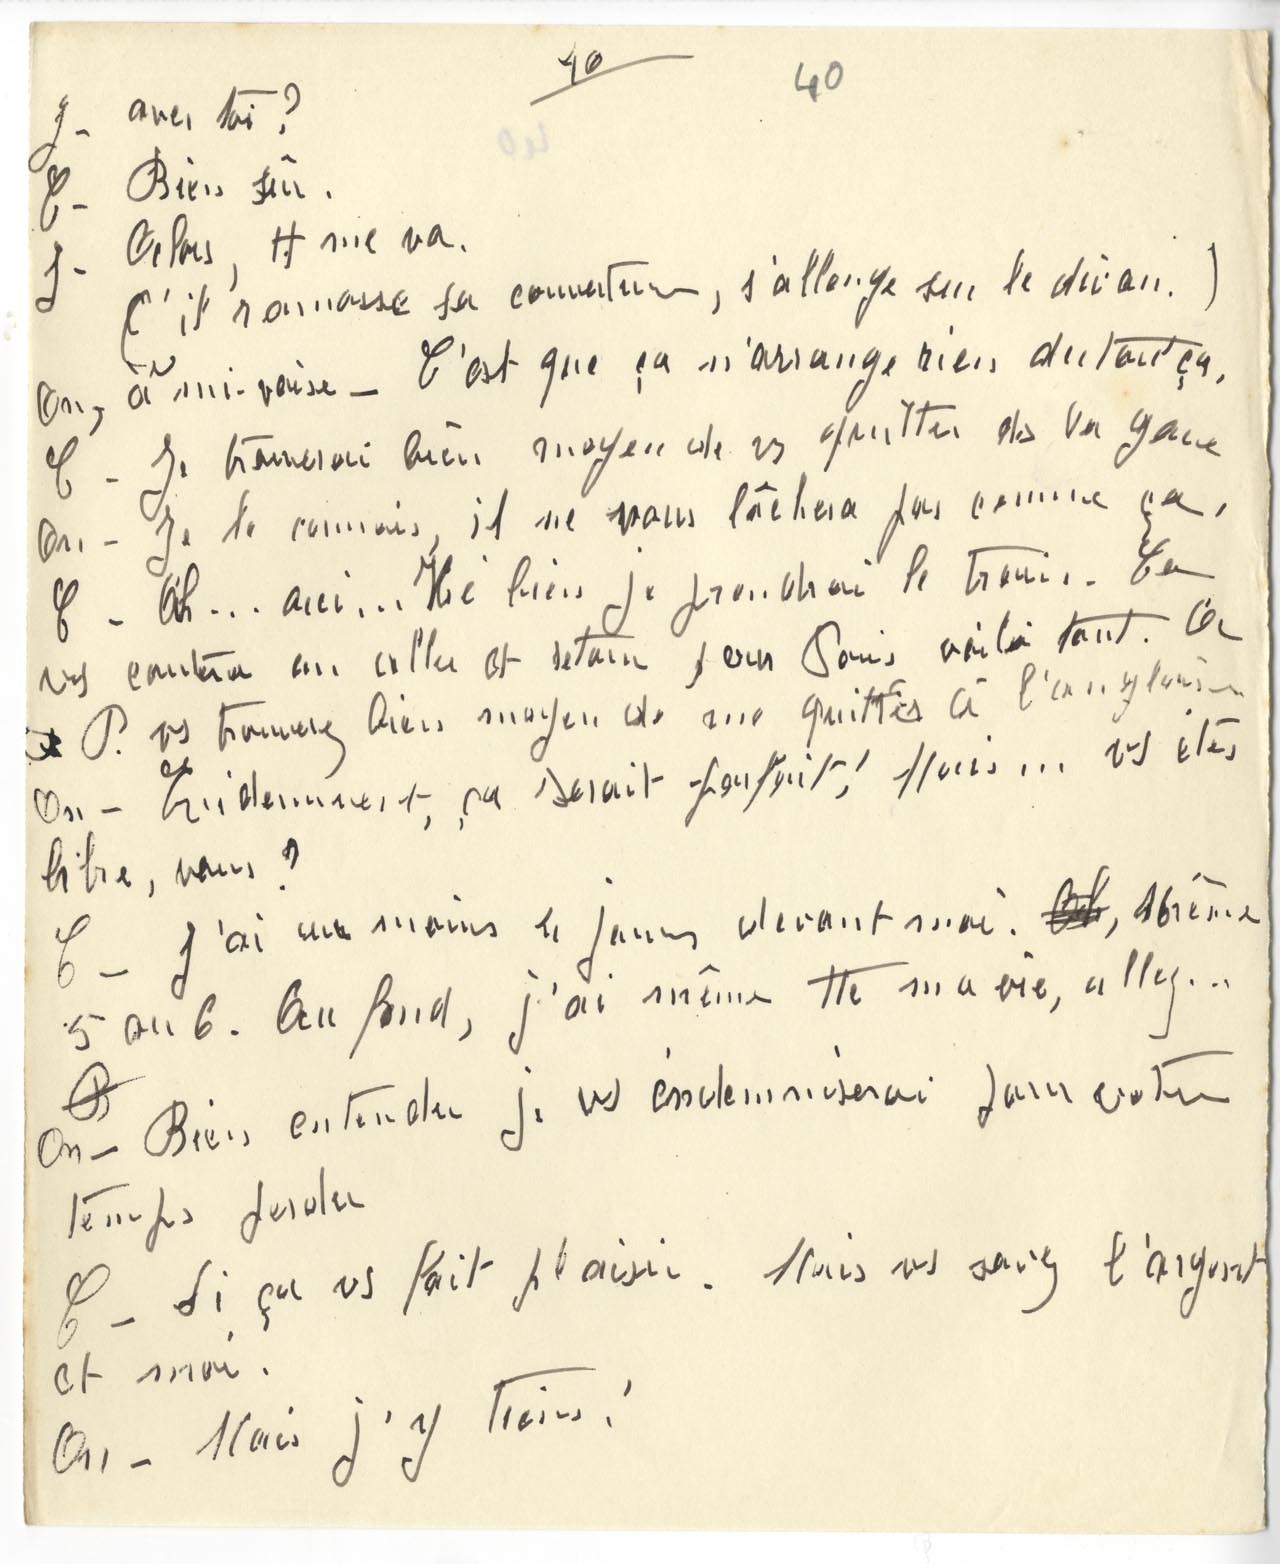 40 40
J- avec toi ?
C- Bien sûr.
J- Alors, tt me va.
(il ramasse sa couverture, s'allonge sur le divan.)
On, à mi-voix - C'est que ça n'arrange rien du tout ça.
C - Je trouverai bien moyen de vs quitter ds la gare
On - Je le connais, il ne vous lâchera pas comme ça.
C - Ah... oui... Hé bien je prendrai le train. Ça
vs coûtera un aller et retour pour Paris voilà tout. A
P. vs trouverez bien moyen de me quitter à l'anglaise
On - Évidemment, ça serait parfait ! Mais... vs êtes
libre, vous ?
C - J'ai au moins 4 jours devant moi. , Même
5 ou 6. Au fond, j'ai même tte ma vie, allez...
On - Bien entendu je vs indemniserai pour votre
temps perdu
C - Si ça vs fait plaisir. Mais vs savez l'argent
et moi.
On - Mais j'y tiens !